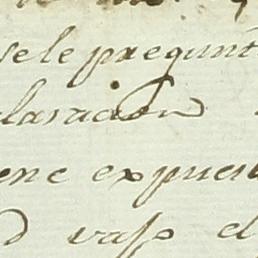 sele pregunt
claracion
ene expues
d vaso el